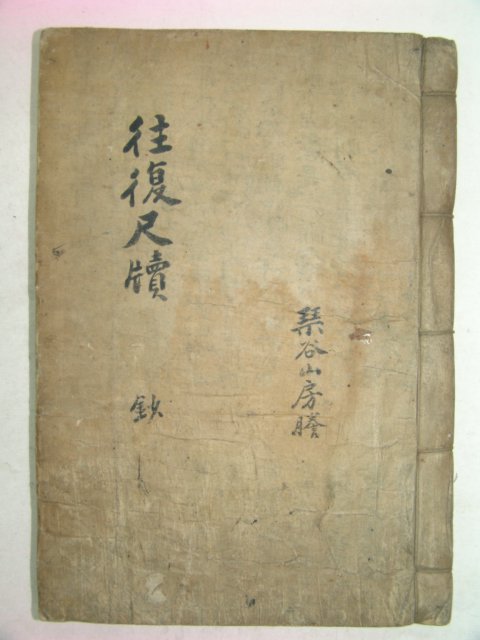 往復尺牘
琹谷山房謄